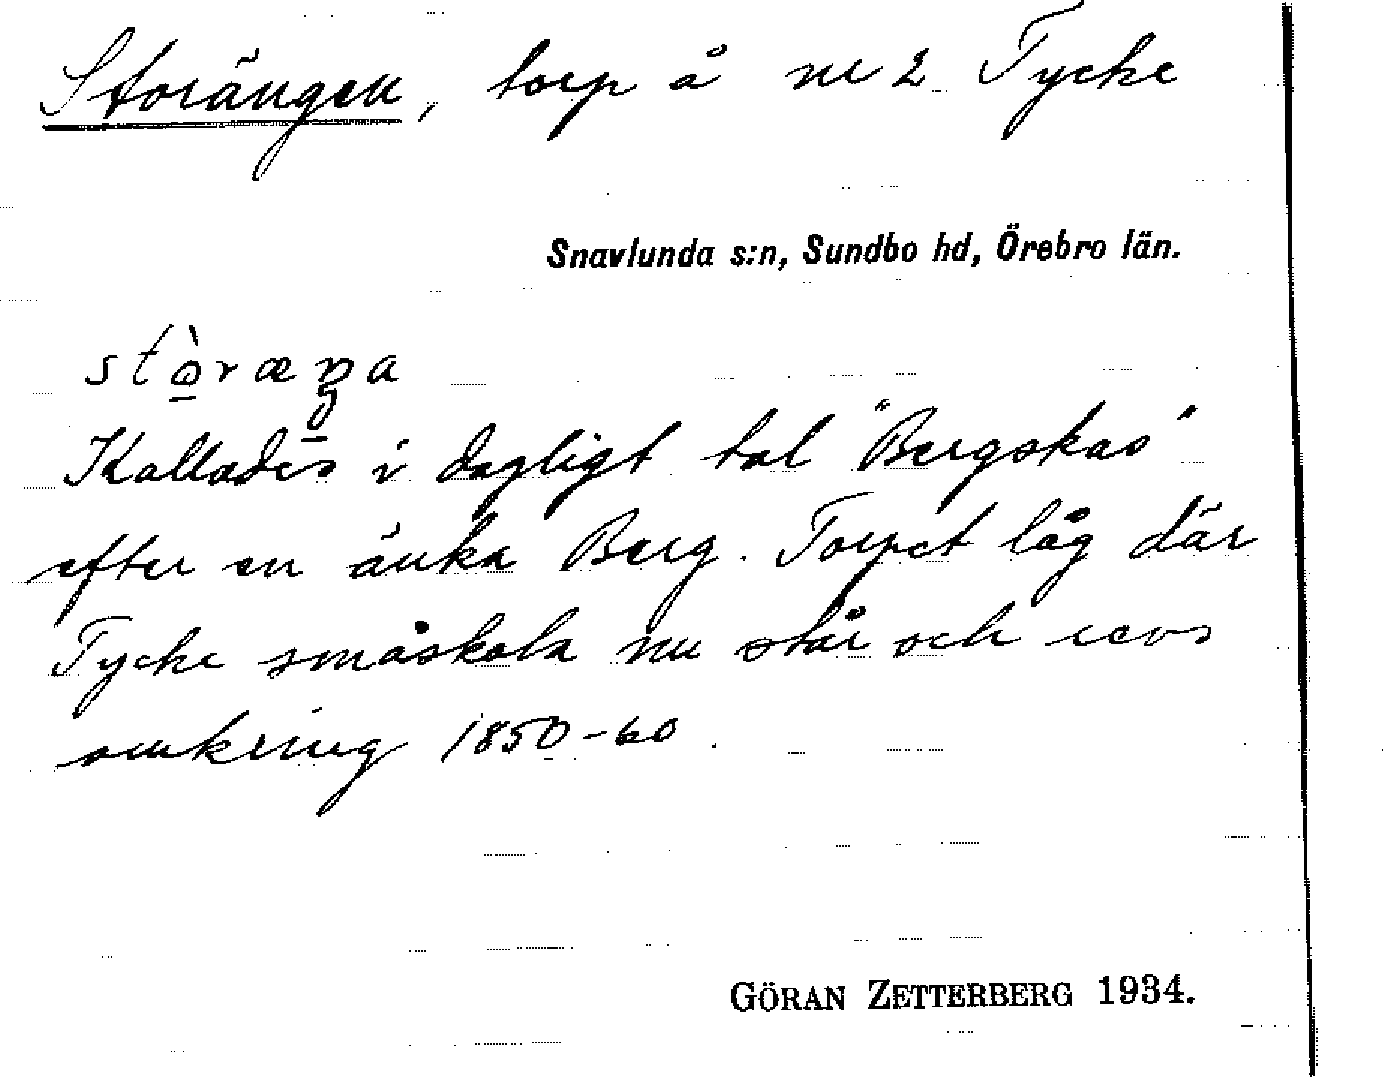 Storängen, torp å nr 2 Tycke
Snavlunda s:n, Sundbo hd, Örebro län.
stò̱ræŋa
Kallades i dagligt tal "Bergskas"
efter en änka Berg. Torpet låg där
Tycke småskola nu står och revs
omkring 1850-60.
GÖRAN ZETTERBERG 1934.